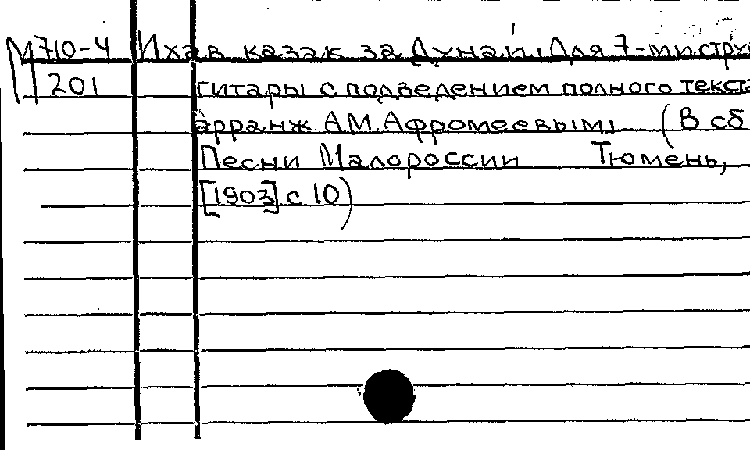 М710-4 Ихав казак за Дунай. Для 7-ми стру
201 гитары с подведением полного текста
арранж А.М. Афромеевым, (В сб
Песни Малороссии Тюмень,
[1903] с 10)